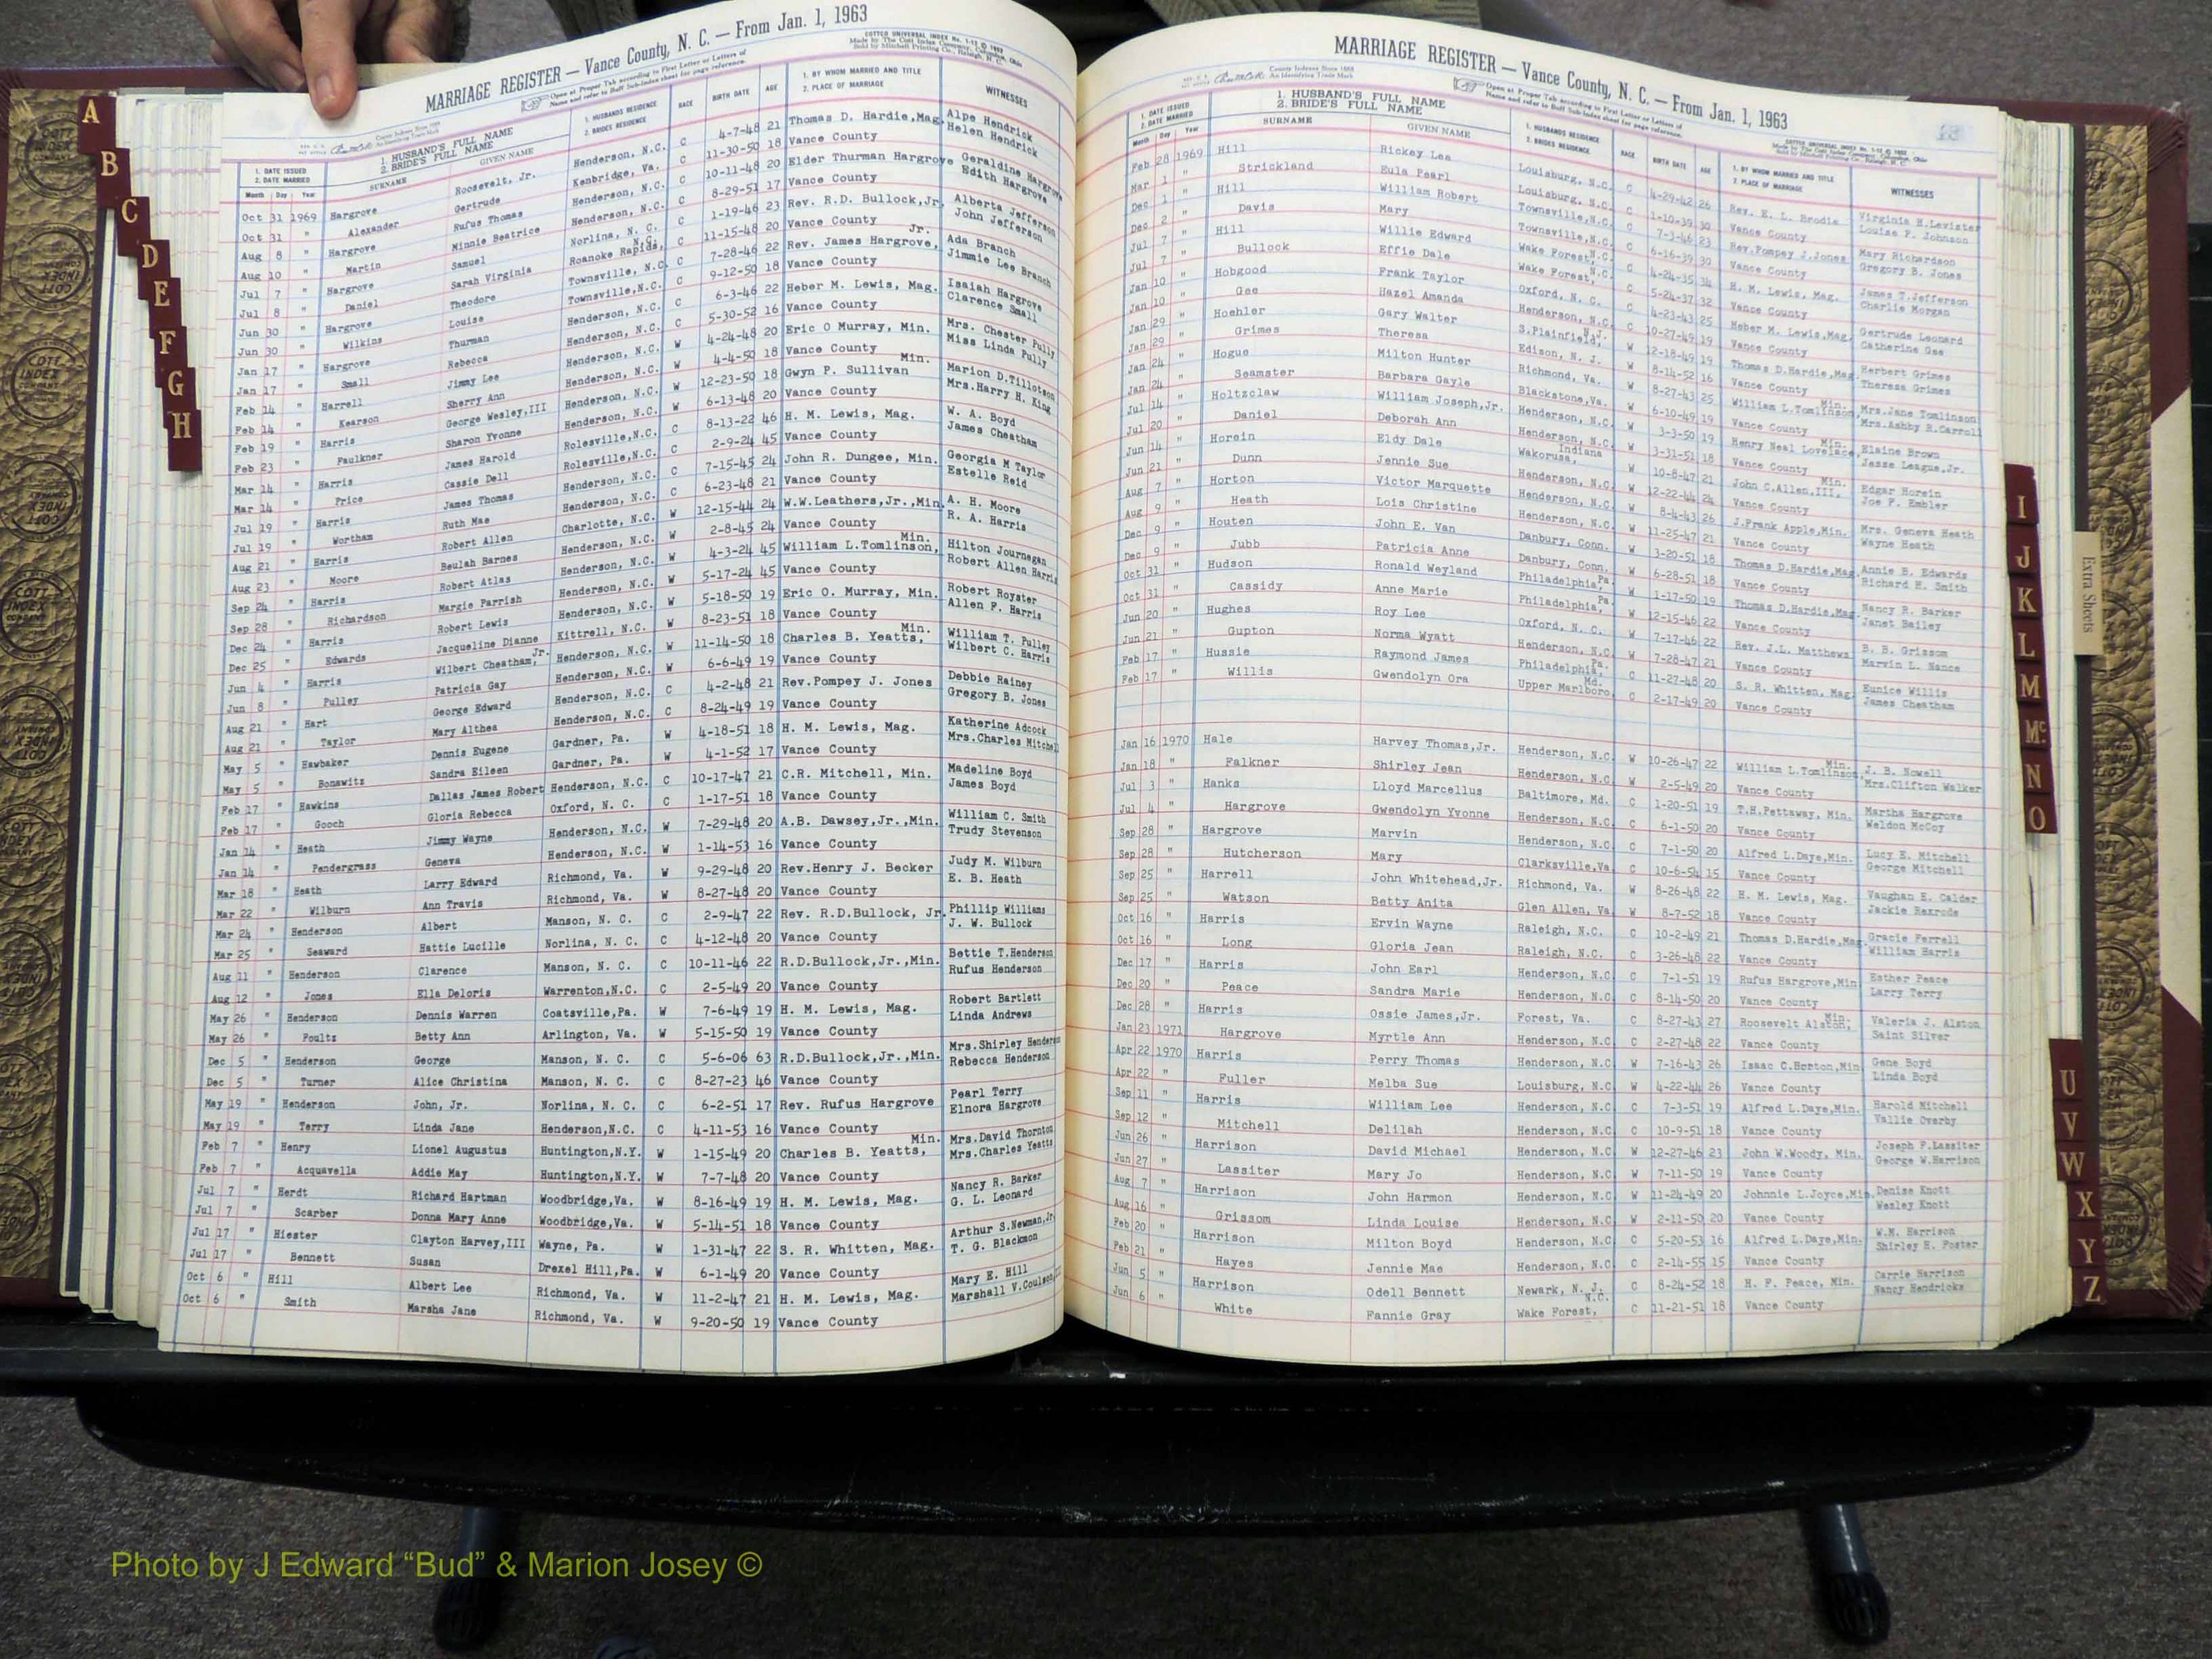 MARRIAGE REGISTER — Vance County, N. C. — From Jan. 1, 1963
1. DATE ISSUED 2. DATE MARRIED Month Day Year 1. HUSBAND'S FULL NAME 2. BRIDE'S FULL NAME SURNAME GIVEN NAME 1. HUSBANDS RESIDENCE 2. BRIDES RESIDENCE RACE BIRTH DATE AGE 1. BY WHOM MARRIED AND TITLE 2. PLACE OF MARRIAGE WITNESSES
Oct 31 1969 Hargrove Roosevelt, Jr. Henderson, N.C. C 4-7-48 21 Thomas D. Hardie,Mag. Alpe Hendrick
Oct 31 " Alexander Gertrude Kenbridge, Va. C 11-30-50 18 Vance County Helen Hendrick
Aug 8 " Hargrove Rufus Thomas Henderson, N.C. C 10-11-48 20 Elder Thurman Hargrove Geraldine Hargrove
Aug 10 " Martin Minnie Beatrice Henderson, N.C. C 8-29-51 17 Vance County Edith Hargrove
Jul 7 " Hargrove Samuel Norlina, N. C. C 1-19-46 23 Rev. R.D. Bullock,Jr. Alberta Jefferson
Jul 8 " Daniel Sarah Virginia Roanoke Rapids, N.C. C 11-15-48 20 Vance County John Jefferson
Jun 30 " Hargrove Theodore Townsville, N.C. C 7-28-46 22 Rev. James Hargrove, Jr. Ada Branch
Jun 30 " Wilkins Louise Townsville,N.C. C 9-12-50 18 Vance County Jimmie Lee Branch
Jan 17 " Hargrove Thurman Henderson, N.C. C 6-3-46 22 Heber M. Lewis, Mag. Isaiah Hargrove
Jan 17 " Small Rebecca Henderson, N.C. C 5-30-52 16 Vance County Clarence Small
Feb 14 " Harrell Jimmy Lee Henderson, N.C. W 4-24-48 20 Eric O Murray, Min. Mrs. Chester Pully
Feb 14 " Kearson Sherry Ann Henderson, N.C. W 4-4-50 18 Vance County Miss Linda Pully
Feb 19 " Harris George Wesley,III Henderson, N.C. W 12-23-50 18 Gwyn P. Sullivan Min. Marion D.Tillotson
Feb 23 " Faulkner Sharon Yvonne Henderson, N.C. W 6-13-48 20 Vance County Mrs.Harry H. King
Mar 14 " Harris James Harold Rolesville,N.C. C 8-13-22 46 H. M. Lewis, Mag. W. A. Boyd
Mar 14 " Price Cassie Dell Rolesville,N.C. C 2-9-24 45 Vance County James Cheatham
Jul 19 " Harris James Thomas Henderson, N.C. C 7-15-45 24 John R. Dungee, Min. Georgia M Taylor
Jul 19 " Wortham Ruth Mae Henderson, N.C. C 6-23-48 21 Vance County Estelle Reid
Aug 21 " Harris Robert Allen Charlotte, N.C. W 12-15-44 24 W.W.Leathers,Jr.,Min. A. H. Moore
Aug 23 " Moore Beulah Barnes Henderson, N.C. W 2-8-45 24 Vance County R. A. Harris
Sep 24 " Harris Robert Atlas Henderson, N.C. W 4-3-24 45 William L.Tomlinson, Min. Hilton Journegan
Sep 28 " Richardson Margie Parrish Henderson, N.C. W 5-17-24 45 Vance County Robert Allen Harris
Dec 24 " Harris Robert Lewis Henderson, N.C. W 5-18-50 19 Eric O. Murray, Min. Robert Royster
Dec 25 " Edwards Jacqueline Dianne Kittrell, N.C. W 8-23-51 18 Vance County Allen F. Harris
Jun 4 " Harris Wilbert Cheatham, Jr. Henderson, N.C. W 11-14-50 18 Charles B. Yeatts, Min. William T. Pulley
Jun 8 " Pulley Patricia Gay Henderson, N.C. W 6-6-49 19 Vance County Wilbert C. Harris
Aug 21 " Hart George Edward Henderson, N.C. C 4-2-48 21 Rev.Pompey J. Jones Debbie Rainey
Aug 21 " Taylor Mary Althea Henderson, N.C. C 8-24-49 19 Vance County Gregory B. Jones
May 5 " Hawbaker Dennis Eugene Gardner, Pa. W 4-18-51 18 H. M. Lewis, Mag. Katherine Adcock
May 5 " Bonawitz Sandra Eileen Gardner, Pa. W 4-1-52 17 Vance County Mrs.Charles Mitchell
Feb 17 " Hawkins Dallas James Robert Henderson, N.C. C 10-17-47 21 C.R. Mitchell, Min. Madeline Boyd
Feb 17 " Gooch Gloria Rebecca Oxford, N. C. C 1-17-51 18 Vance County James Boyd
Jan 14 " Heath Jimmy Wayne Henderson, N.C. W 7-29-48 20 A.B. Dawsey,Jr.,Min. William C. Smith
Jan 14 " Pendergrass Geneva Henderson, N.C. W 1-14-53 16 Vance County Trudy Stevenson
Mar 18 " Heath Larry Edward Richmond, Va. W 9-29-48 20 Rev.Henry J. Becker Judy M. Wilburn
Mar 22 " Wilburn Ann Travis Richmond, Va. W 8-27-48 20 Vance County E. B. Heath
Mar 24 " Henderson Albert Manson, N. C. C 2-9-47 22 Rev. R.D.Bullock, Jr. Phillip Williams
Mar 25 " Seaward Hattie Lucille Norlina, N. C. C 4-12-48 20 Vance County J. W. Bullock
Aug 11 " Henderson Clarence Manson, N. C. C 10-11-46 22 R.D.Bullock,Jr.,Min. Bettie T.Henderson
Aug 12 " Jones Ella Deloris Warrenton,N.C. C 2-5-49 20 Vance County Rufus Henderson
May 26 " Henderson Dennis Warren Coatsville,Pa. W 7-6-49 19 H. M. Lewis, Mag. Robert Bartlett
May 26 " Foultz Betty Ann Arlington, Va. W 5-15-50 19 Vance County Linda Andrews
Dec 5 " Henderson George Manson, N. C. C 5-6-06 63 R.D.Bullock,Jr.,Min. Mrs.Shirley Henderson
Dec 5 " Turner Alice Christina Manson, N. C. C 8-27-23 46 Vance County Rebecca Henderson
May 19 " Henderson John, Jr. Norlina, N. C. C 6-2-51 17 Rev. Rufus Hargrove Pearl Terry
May 19 " Terry Linda Jane Henderson,N.C. C 4-11-53 16 Vance County Elnora Hargrove
Feb 7 " Henry Lionel Augustus Huntington,N.Y. W 1-15-49 20 Charles B. Yeatts, Min. Mrs.David Thornton
Feb 7 " Acquavella Addie May Huntington,N.Y. W 7-7-48 20 Vance County Mrs.Charles Yeatts
Jul 7 " Herdt Richard Hartman Woodbridge,Va. W 8-16-49 19 H. M. Lewis, Mag. Nancy R. Barker
Jul 7 " Scarber Donna Mary Anne Woodbridge,Va. W 5-14-51 18 Vance County G. L. Leonard
Jul 17 " Hiester Clayton Harvey,III Wayne, Pa. W 1-31-47 22 S. R. Whitten, Mag. Arthur S.Newman,Jr.
Jul 17 " Bennett Susan Drexel Hill,Pa. W 6-1-49 20 Vance County T. G. Blackmon
Oct 6 " Hill Albert Lee Richmond, Va. W 11-2-47 21 H. M. Lewis, Mag. Mary E. Hill
Oct 6 " Smith Marsha Jane Richmond, Va. W 9-20-50 19 Vance County Marshall V.Coulson,III
MARRIAGE REGISTER — Vance County, N. C. — From Jan. 1, 1963
1. DATE ISSUED 2. DATE MARRIED Month Day Year 1. HUSBAND'S FULL NAME 2. BRIDE'S FULL NAME SURNAME GIVEN NAME 1. HUSBANDS RESIDENCE 2. BRIDES RESIDENCE RACE BIRTH DATE AGE 1. BY WHOM MARRIED AND TITLE 2. PLACE OF MARRIAGE WITNESSES
Feb 28 1969 Hill Rickey Lee Louisburg, N.C. C 4-29-42 26 Rev. E. L. Brodie Virginia H.Levister
Mar 1 " Strickland Eula Pearl Louisburg, N.C. C 1-10-39 30 Vance County Louise P. Johnson
Dec 1 " Hill William Robert Townsville,N.C. C 7-3-46 23 Rev.Pompey J.Jones Mary Richardson
Dec 2 " Davis Mary Townsville,N.C. C 6-16-39 30 Vance County Gregory B. Jones
Jul 7 " Hill Willie Edward Wake Forest,N.C. C 4-24-35 34 H. M. Lewis, Mag. James T.Jefferson
Jul 7 " Bullock Effie Dale Wake Forest,N.C. C 5-24-37 32 Vance County Charlie Morgan
Jan 10 " Hobgood Frank Taylor Oxford, N. C. C 4-23-43 25 Heber M. Lewis,Mag. Gertrude Leonard
Jan 10 " Gee Hazel Amanda Henderson, N.C. C 10-27-49 19 Vance County Catherine Gee
Jan 29 " Hoehler Gary Walter S.Plainfield, N.J. W 12-18-49 19 Thomas D.Hardie,Mag. Herbert Grimes
Jan 29 " Grimes Theresa Edison, N. J. W 8-14-52 16 Vance County Theresa Grimes
Jan 24 " Hogue Milton Hunter Richmond, Va. W 8-27-43 25 William L.Tomlinson, Min. Mrs.Jane Tomlinson
Jan 24 " Seamster Barbara Gayle Blackstone,Va. W 6-10-49 19 Vance County Mrs.Ashby R.Carroll
Jul 14 " Holtzclaw William Joseph,Jr. Henderson, N.C. W 3-3-50 19 Henry Neal Lovelace, Min. Elaine Brown
Jul 20 " Daniel Deborah Ann Henderson, N.C. W 3-31-51 18 Vance County Jesse League,Jr.
Jun 14 " Horein Eldy Dale Wakorusa, Indiana W 10-8-47 21 John C.Allen,III, Min. Edgar Horein
Jun 21 " Dunn Jennie Sue Henderson, N.C. W 12-22-44 24 Vance County Joe P. Embler
Aug 7 " Horton Victor Marquette Henderson, N.C. W 8-4-43 26 J.Frank Apple,Min. Mrs. Geneva Heath
Aug 9 " Heath Lois Christine Henderson, N.C. W 11-25-47 21 Vance County Wayne Heath
Dec 9 " Houten John E. Van Danbury, Conn. W 3-20-51 18 Thomas D.Hardie,Mag. Annie B. Edwards
Dec 9 " Jubb Patricia Anne Danbury, Conn. W 6-28-51 18 Vance County Richard H. Smith
Oct 31 " Hudson Ronald Weyland Philadelphia, Pa. W 1-17-50 19 Thomas D.Hardie,Mag. Nancy R. Barker
Oct 31 " Cassidy Anne Marie Philadelphia, Pa. W 12-15-46 22 Vance County Janet Bailey
Jun 20 " Hughes Roy Lee Oxford, N. C. W 7-17-46 22 Rev. J.L. Matthews B. B. Grissom
Jun 21 " Gupton Norma Wyatt Henderson, N.C. W 7-28-47 21 Vance County Marvin L. Nance
Feb 17 " Hussie Raymond James Philadelphia, Pa. C 11-27-48 20 S. R. Whitten, Mag. Eunice Willis
Feb 17 " Willis Gwendolyn Ora Upper Marlboro, Md. C 2-17-49 20 Vance County James Cheatham
Jan 16 1970 Hale Harvey Thomas,Jr. Henderson, N.C. W 10-26-47 22 William L.Tomlinson, Min. J. B. Nowell
Jan 18 " Falkner Shirley Jean Henderson, N.C. W 2-5-49 20 Vance County Mrs.Clifton Walker
Jul 3 " Hanks Lloyd Marcellus Baltimore, Md. C 1-20-51 19 T.H.Pettaway, Min. Martha Hargrove
Jul 4 " Hargrove Gwendolyn Yvonne Henderson, N.C. C 6-1-50 20 Vance County Weldon McCoy
Sep 28 " Hargrove Marvin Henderson, N.C. C 7-1-50 20 Alfred L.Daye,Min. Lucy E. Mitchell
Sep 28 " Hutcherson Mary Clarksville,Va. C 10-6-54 15 Vance County George Mitchell
Sep 25 " Harrell John Whitehead,Jr. Richmond, Va. W 8-26-48 22 H. M. Lewis, Mag. Vaughan E. Calder
Sep 25 " Watson Betty Anita Glen Allen, Va. W 8-7-52 18 Vance County Jackie Rexrode
Oct 16 " Harris Ervin Wayne Raleigh, N.C. C 10-2-49 21 Thomas D.Hardie,Mag. Gracie Ferrell
Oct 16 " Long Gloria Jean Raleigh, N.C. C 3-26-48 22 Vance County William Harris
Dec 17 " Harris John Earl Henderson, N.C C 7-1-51 19 Rufus Hargrove,Min. Esther Peace
Dec 20 " Peace Sandra Marie Henderson, N.C C 8-14-50 20 Vance County Larry Terry
Dec 28 " Harris Ossie James,Jr. Forest, Va. C 8-27-43 27 Roosevelt Alston, Min. Valeria J. Alston
Jan 23 1971 Hargrove Myrtle Ann Henderson, N.C C 2-27-48 22 Vance County Saint Silver
Apr 22 1970 Harris Perry Thomas Henderson, N.C W 7-16-43 26 Isaac C.Horton,Min. Gene Boyd
Apr 22 " Fuller Melba Sue Louisburg, N.C W 4-22-44 26 Vance County Linda Boyd
Sep 11 " Harris William Lee Henderson, N.C C 7-3-51 19 Alfred L.Daye,Min. Harold Mitchell
Sep 12 " Mitchell Delilah Henderson, N.C C 10-9-51 18 Vance County Vallie Overby
Jun 26 " Harrison David Michael Henderson, N.C W 12-27-46 23 John W.Woody, Min. Joseph F.Lassiter
Jun 27 " Lassiter Mary Jo Henderson, N.C W 7-11-50 19 Vance County George W.Harrison
Aug 7 " Harrison John Harmon Henderson, N.C W 11-24-49 20 Johnnie L.Joyce,Min. Denise Knott
Aug 16 " Grissom Linda Louise Henderson, N.C W 2-11-50 20 Vance County Wesley Knott
Feb 20 " Harrison Milton Boyd Henderson, N.C C 5-20-53 16 Alfred L.Daye,Min. W.M. Harrison
Feb 21 " Hayes Jennie Mae Henderson, N.C C 2-14-55 15 Vance County Shirley H. Foster
Jun 5 " Harrison Odell Bennett Newark, N. J. C 8-24-52 18 H. F. Peace, Min. Carrie Harrison
Jun 6 " White Fannie Gray Wake Forest, N.C. C 11-21-51 18 Vance County Nancy Hendricks
A
B
C
D
E
F
G
H
I
J
K
L
M
Mc
N
O
Extra Sheets
U
V
W
X
Y
Z
Photo by J Edward “Bud” & Marion Josey ©